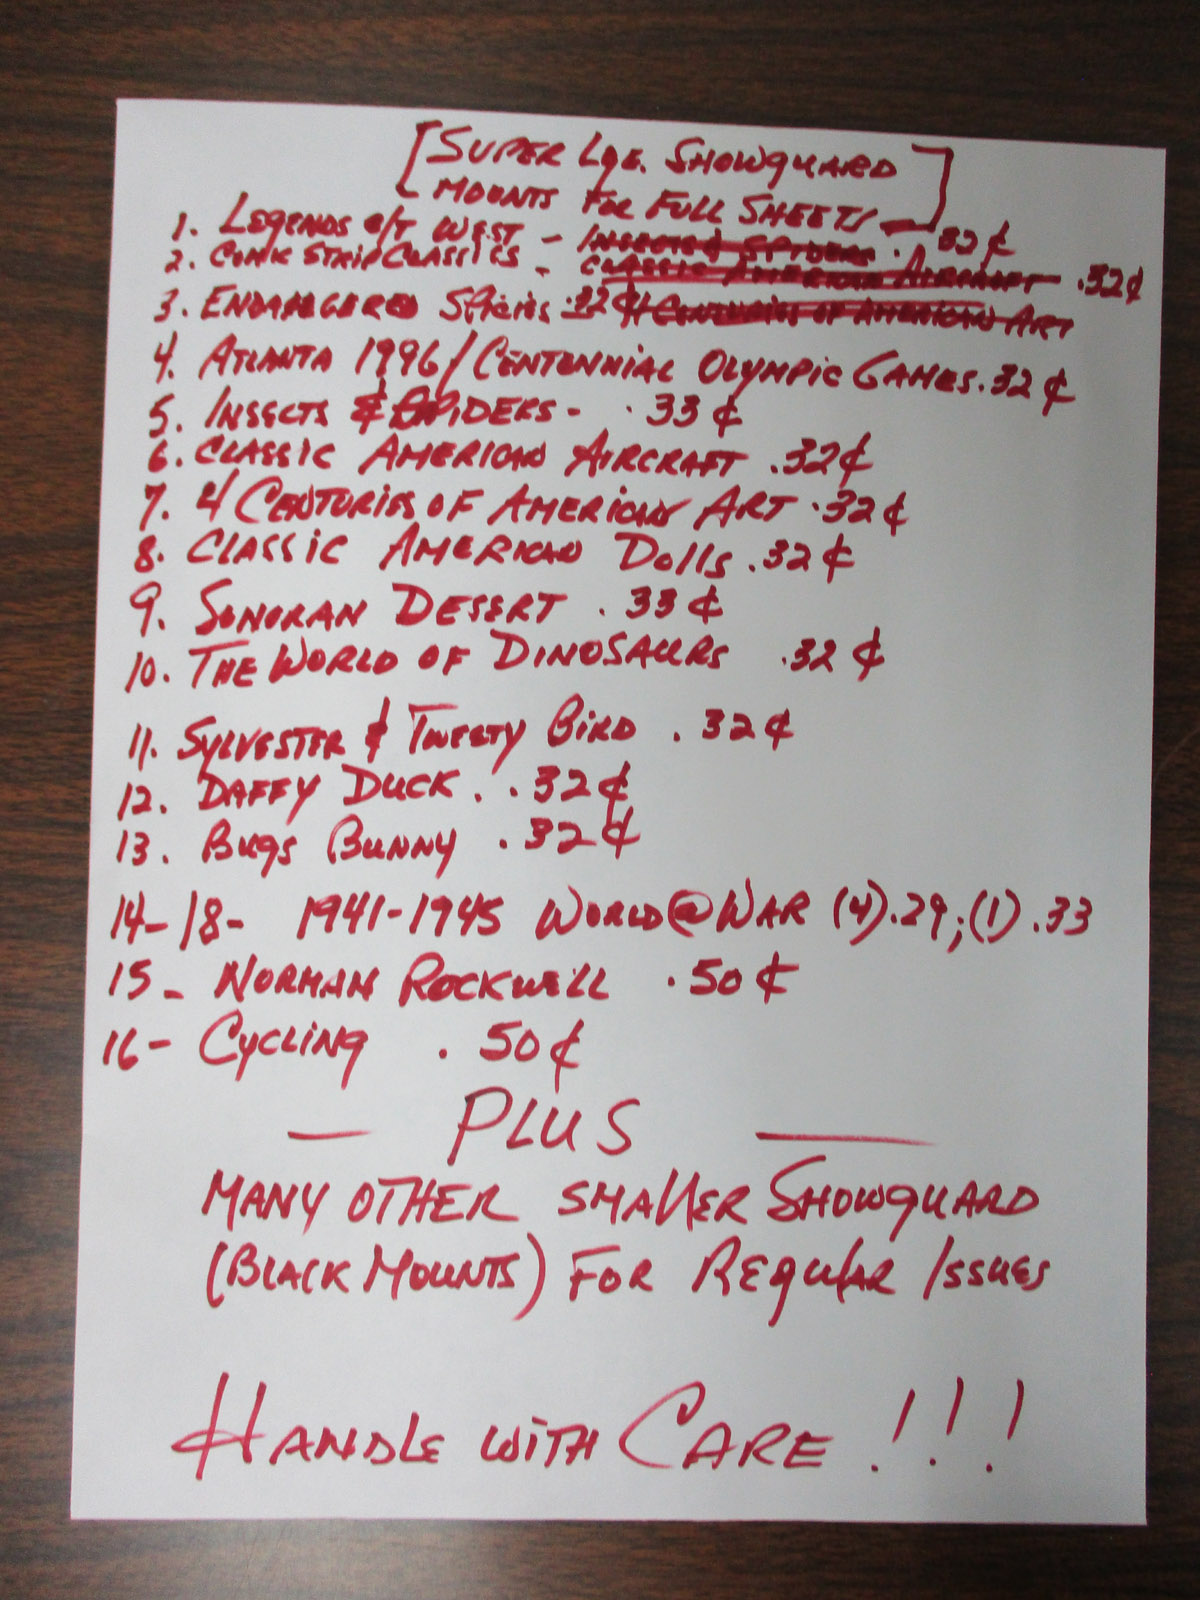 [SUPER LGE. SHOWGUARD
MOUNTS FOR FULL SHEETS-]
1. LEGENDS O/T WEST - INSECTS & SPIDERS . 32¢
2. COMIC STRIP CLASSICS - CLASSIC AMERICAN AIRCRAFT .32¢
3. ENDANGERED SPECIES .32¢ 4 CENTURIES OF AMERICAN ART
4. ATLANTA 1996/CENTENNIAL OLYMPIC GAMES.32¢
5. INSECTS & SPIDERS - .33¢
6. CLASSIC AMERICAN AIRCRAFT .32¢
7. 4 CENTURIES OF AMERICAN ART .32¢
8. CLASSIC AMERICAN Dolls .32¢
9. SONORAN DESERT .33¢
10. THE WORLD OF DINOSAURS .32¢
11. SYLVESTER & TWEETY BIRD .32¢
12. DAFFY DUCK . .32¢
13. BUGS BUNNY .32¢
14-18- 1941-1945 WORLD@WAR (4).29;(1).33
15- NORMAN ROCKWELL .50¢
16- CYCLING .50¢
— PLUS —
MANY OTHER SMALLER SHOWGUARD
(BLACK MOUNTS) FOR REGULAR ISSUES
HANDLE WITH CARE!!!